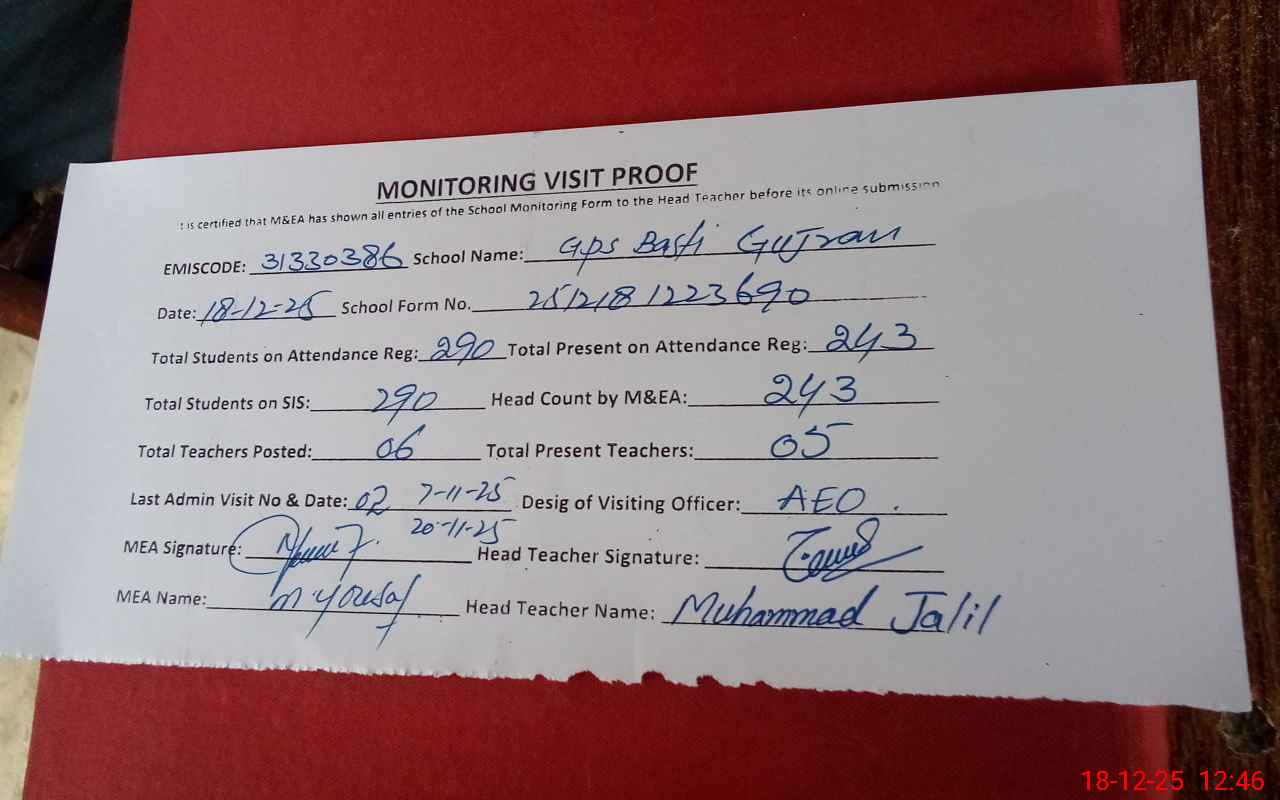 MONITORING VISIT PROOF
t is certified that M&EA has shown all entries of the School Monitoring Form to the Head Teacher before its online submission
EMISCODE: 31330386 School Name: Gps Basti Gujran
Date: 18-12-25 School Form No. 2512181223690
Total Students on Attendance Reg: 290 Total Present on Attendance Reg: 243
Total Students on SIS: 290 Head Count by M&EA: 243
Total Teachers Posted: 06 Total Present Teachers: 05
Last Admin Visit No & Date: 02 7-11-25 Desig of Visiting Officer: AEO.
20-11-25
MEA Signature: Head Teacher Signature:
MEA Name: M.Yousaf Head Teacher Name: Muhammad Jalil
18-12-25 12:46